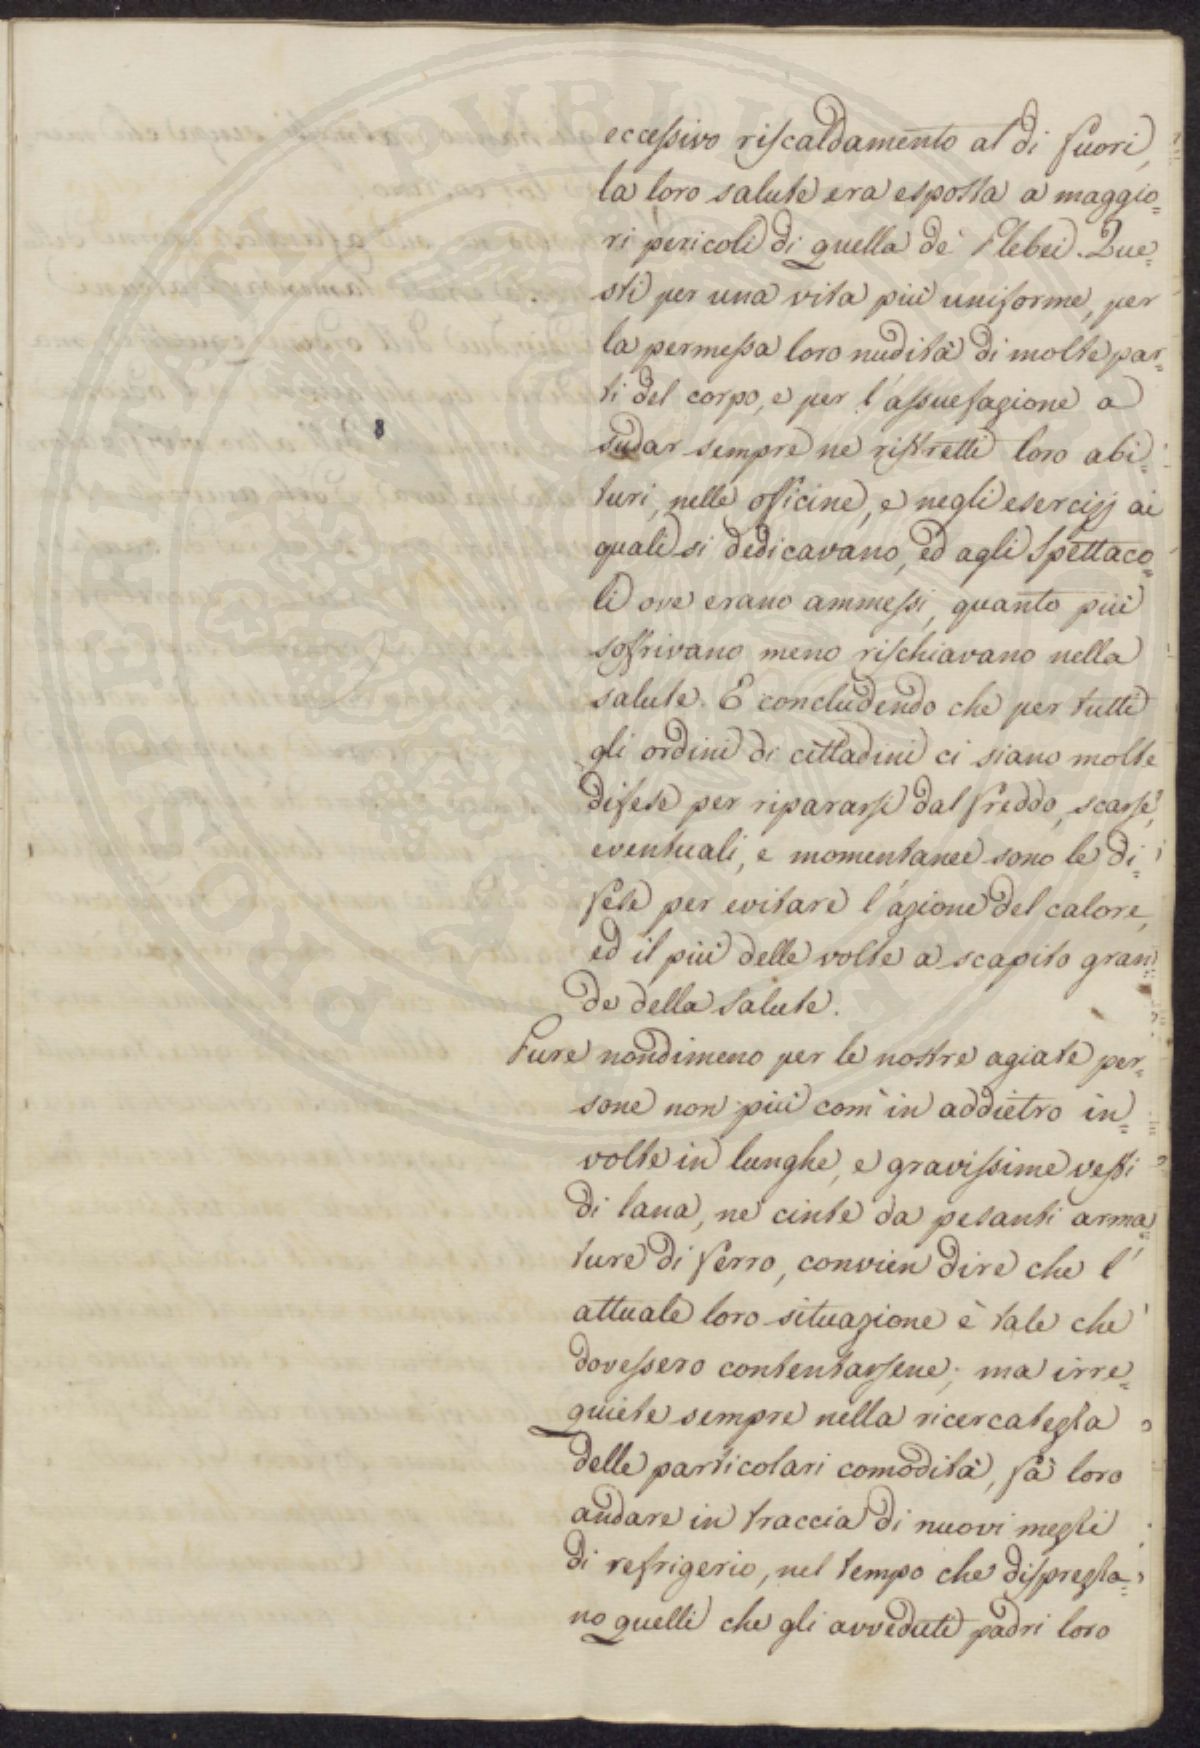 eccessivo riscaldamento al di fuori,
la loro salute era esposta a maggio=
ri pericoli di quella de' Plebei. Que=
sti per una vita più uniforme, per
la permessa loro nudità di molte par=
ti del corpo, e per l'assuefazione a
sudar sempre ne ristretti loro abi=
turi, nelle officine, e negli esercizj ai
quali si dedicavano, ed agli Spettaco=
li ove erano ammessi, quanto più
soffrivano meno rischiavano nella
salute. E concludendo che per tutti
gli ordini di cittadini ci siano molte
difese per ripararsi dal freddo, scarse,
eventuali, e momentanee sono le di=
fese per evitare l'azione del calore,
ed il più delle volte a scapito gran=
de della salute.
Pure nondimeno per le nostre agiate per=
sone non più com' in addietro in=
volte in lunghe, e gravissime vesti
di lana, nè cinte da pesanti arma=
ture di ferro, convien dire che l'
attuale loro situazione è tale che
dovessero contentarsene; ma irre=
quiete sempre nella ricercatezza
delle particolari comodità, fà loro
andare in traccia di nuovi mezzi
di refrigerio, nel tempo che disprezza=
no quelli che gli avveduti padri loro